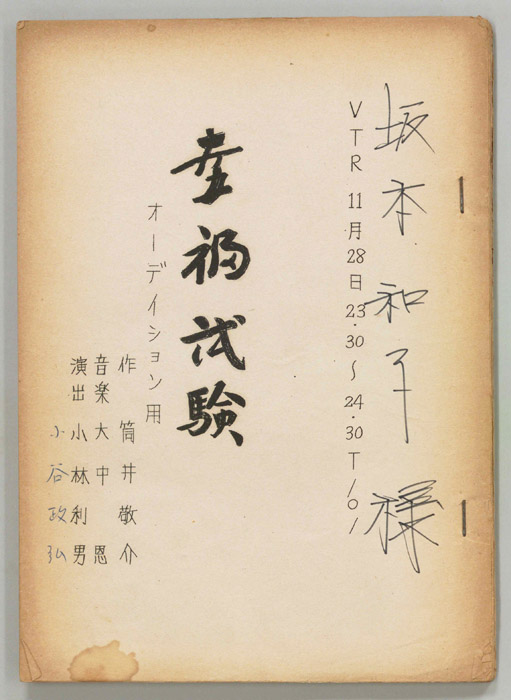 坂本和子様
VTR 11月28日 23.30〜24.30 T101
幸福試験
オーディション用
作 筒井敬介
音楽 大中恩
演出 小林利男
小谷政弘